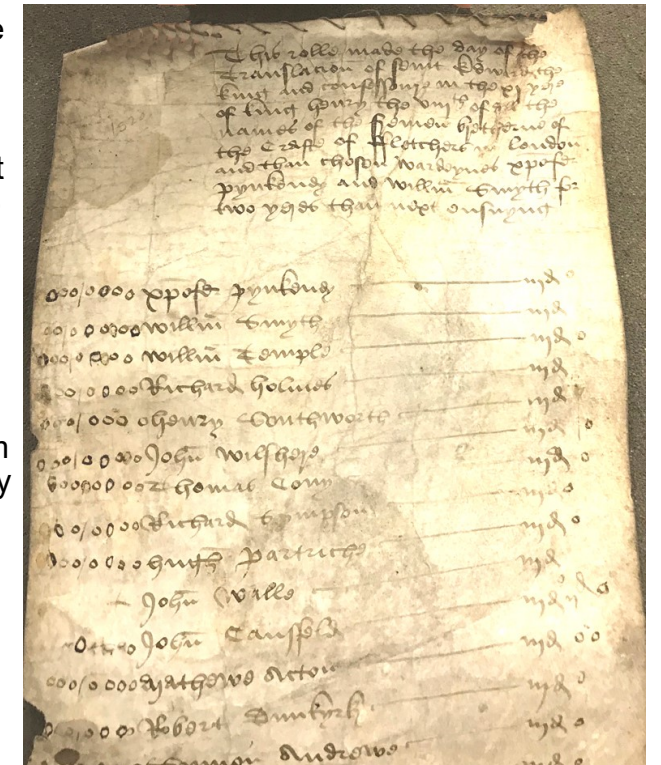 e
t
n
y
This rolle made the day of the
Translacion of seint Edward the
king and confessoure in the xj yere
of king henry the viijth of all the
names of the ffremen bretherne of
the Crafte of ffletchers in london
and than chosen wardeynes xpofer
pynkeney and willm Smyth for
two yeres than next ensuyng
xpofer pynkeney iiijd
willm Smyth iiijd
willm Temple iiijd
Richard holmes iiijd
henry Southworth iiijd
John wilshere iiijd
Thomas Cony iiijd
Richard Sympson iiijd
hugh partriche iiijd
John Walle
John Caunfeld iiijd
Mathewe Acton iiijd
Robert Dunkyrk iiijd
Andrewe